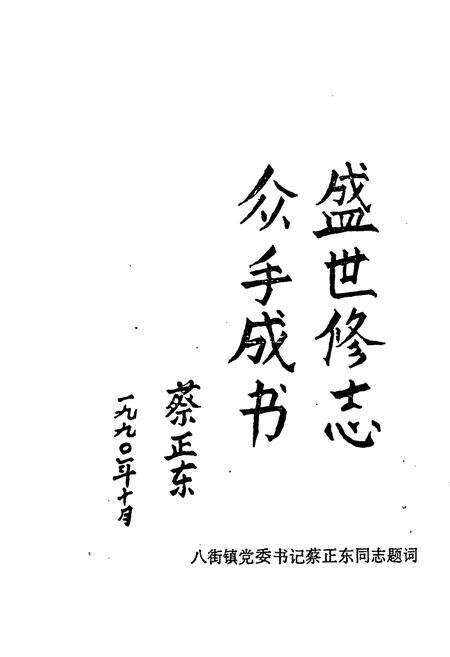 盛世修志
众手成书
蔡正东
一九九〇年十月
八街镇党委书记蔡正东同志题词